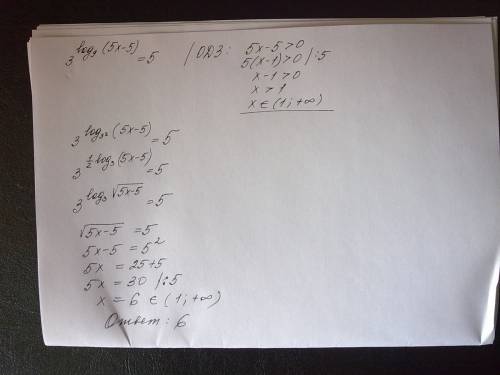 3^{log₉(5x-5)} = 5 | ОДЗ: 5x-5>0
5(x-1)>0 |:5
x-1>0
x>1
x∈(1;+∞)
3^{log_{3²}(5x-5)} = 5
3^{\frac{1}{2}log₃(5x-5)} = 5
3^{log₃√(5x-5)} = 5
√(5x-5) = 5
5x-5 = 5²
5x = 25+5
5x = 30 |:5
x = 6 ∈ (1;+∞)
Ответ: 6